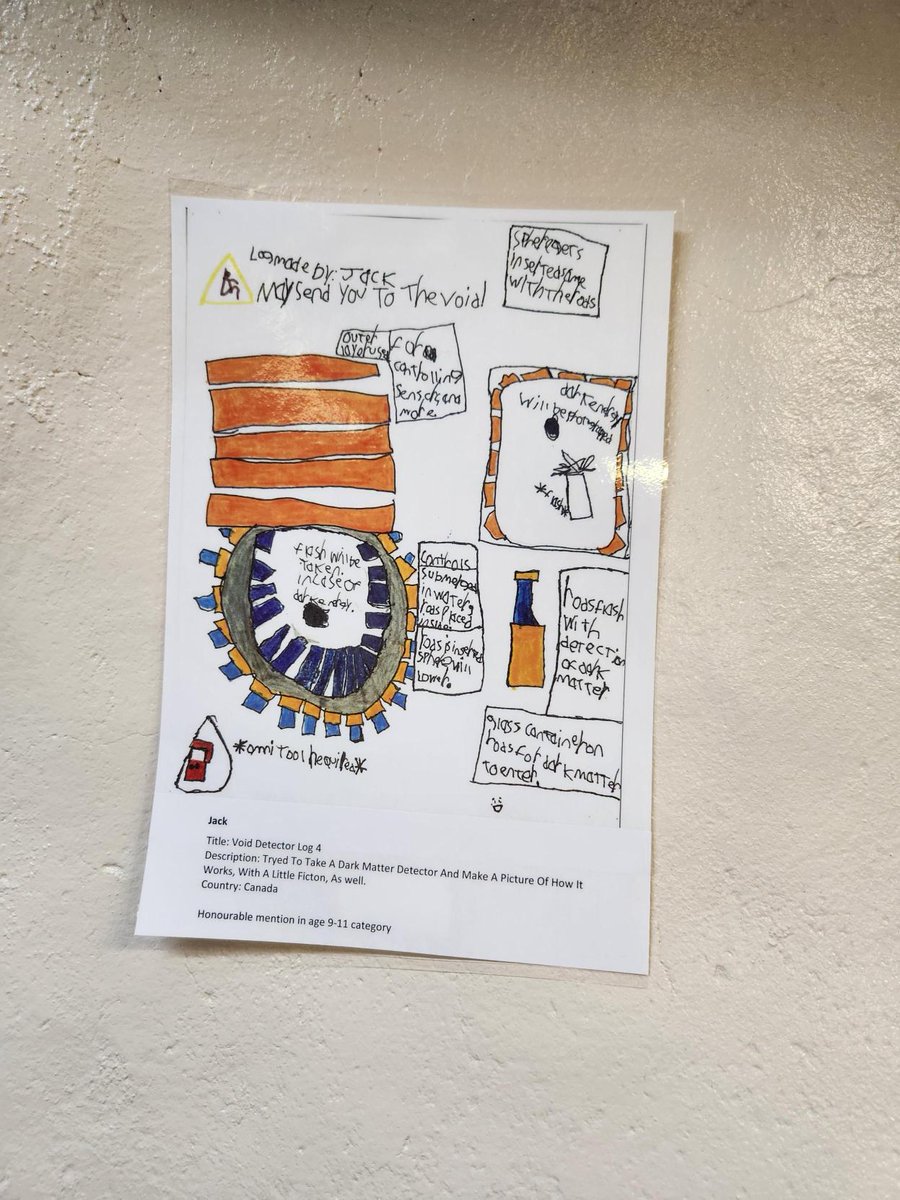 Log made by: JACK
May Send You To The Void
layers
inserted same
with the rods
outer
layer use
for
controlling
Sensors, and
more.
dark energy
will be
*flash*
flash will be
Taken.
In case of
dark energy.
controls
submerged
in water,
rods placed
inside.
rods inserted
will
lower.
rods flash
with
detection
of dark
matter
glass container on
rods for dark matter
to enter.
*omni tool required*
Jack
Title: Void Detector Log 4
Description: Tryed To Take A Dark Matter Detector And Make A Picture Of How It
Works, With A Little Ficton, As well.
Country: Canada
Honourable mention in age 9-11 category